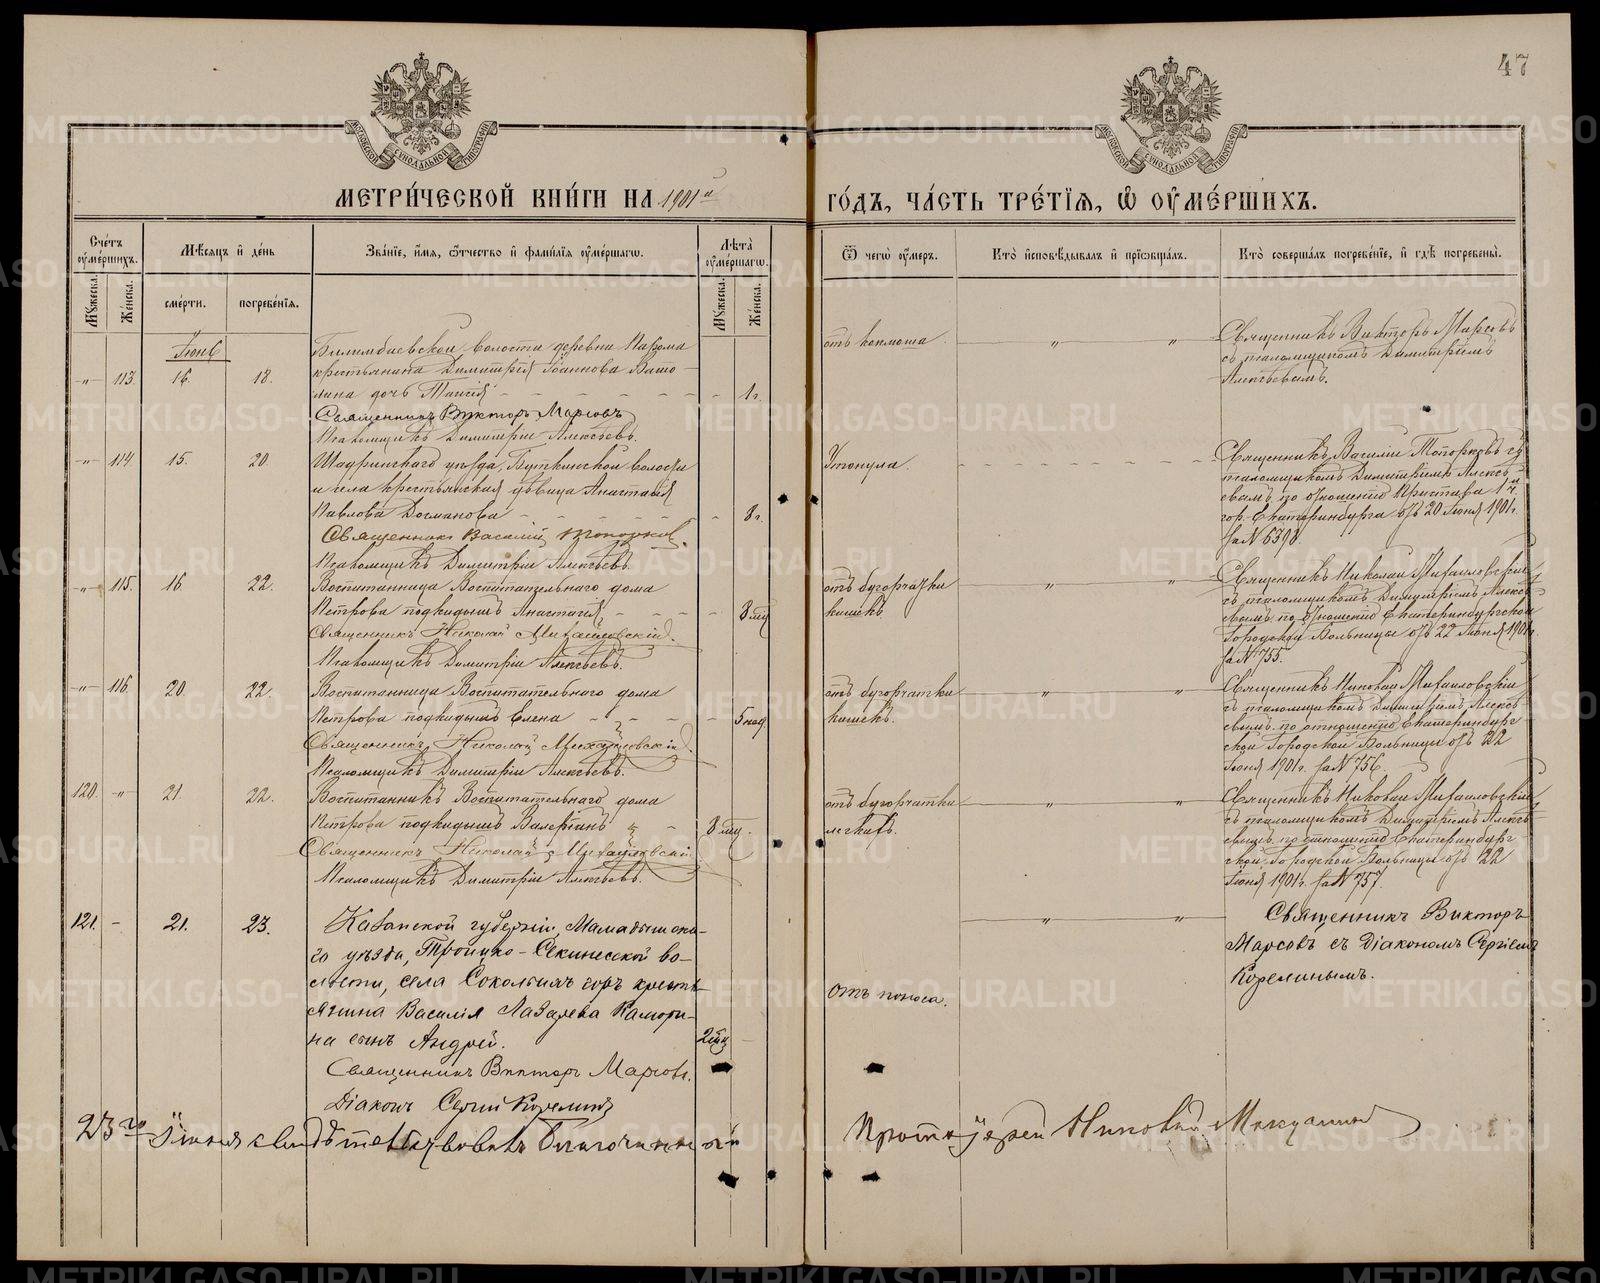 47
МОСКОВСКОЙ СѴНОДАЛЬНОЙ ТИПОГРАФІИ
МОСКОВСКОЙ СѴНОДАЛЬНОЙ ТИПОГРАФІИ
МЕТРИ́ЧЕСКОЙ КНИ́ГИ НА 1901й
ГО́ДЪ, ЧА́СТЬ ТРЕ́ТІѦ, Ѽ ОУ҆МЕ́РШИХЪ.
Сче́тъ оу҆ме́ршихъ.
Мꙋ́жеска.
Же́нска.
Мѣ́сяцъ и҆ де́нь
сме́рти.
погребе́нїѧ.
Зва́нїе, и҆́мѧ, ѻ҆́тчество и҆ фамі́лїѧ оу҆ме́ршагѡ.
Лѣ́та оу҆ме́ршагѡ.
Мꙋ́жеска.
Же́нска.
Ѿ чегѡ̀ оу҆́меръ.
Кто̀ и҆сповѣ́дывалъ и҆ прїѡбща́лъ.
Кто̀ соверша́лъ погребе́нїе, и҆ гдѣ̀ погребены̀.
Іюнь
-„- 113. 16. 18.
Билимбаевской волости деревни
крестьянина Димитрія Іоаннова
лина дочь Таисія - - - - 1 г.
Священникъ Викторъ Марсовъ
Псаломщикъ Димитрій Алексѣевъ.
отъ коклюша. „ „
Священникъ Викторъ Марсовъ
съ псаломщикомъ Димитріемъ
Алексѣевымъ.
-„- 114 15. 20.
Шадринскаго уѣзда, Буткинской волости
и села крестьянская дѣвица Анастасія
Павлова - - - 8 г.
Священникъ Василій Топорковъ.
Псаломщикъ Димитрій Алексѣевъ.
Утонула. - - - -
Священникъ Василій Топорковъ съ
псаломщикомъ Димитріемъ Алексѣ-
евымъ по отношенію Пристава 1й ч.
гор. Екатеринбурга отъ 20 Іюня 1901 г.
за № 6398.
-„- 115. 16. 22.
Воспитанница Воспитательнаго дома
Петрова подкидышъ Анастасія - - - 8 мц
Священникъ Николай Михайловскій.
Псаломщикъ Димитрій Алексѣевъ.
отъ бугорчатки „ „
кишекъ.
Священникъ Николай Михайловскій
съ псаломщикомъ Димитріемъ Алексѣ-
евымъ по отношенію Екатеринбургской
Городской Больницы отъ 22 Іюня 1901 г.
за № 755.
-„- 116. 20. 22.
Воспитанница Воспитательнаго дома
Петрова подкидышъ Елена - - - 5 нед
Священникъ Николай Михайловскій.
Псаломщикъ Димитрій Алексѣевъ.
отъ бугорчатки „ „
кишекъ.
Священникъ Николай Михайловскій
съ псаломщикомъ Димитріемъ Алексѣ-
евымъ по отношенію Екатеринбург-
ской Городской Больницы отъ 22
Іюня 1901 г. за № 756.
120. -„- 21. 22.
Воспитанникъ Воспитательнаго дома
Петрова подкидышъ Валеріанъ „ - 8 мц.
Священникъ Николай Михайловскій
Псаломщикъ Димитрій Алексѣевъ.
отъ бугорчатки „ „
легкихъ.
Священникъ Николай Михайловскій
съ псаломщикомъ Димитріемъ Алексѣ-
евымъ по отношенію Екатеринбург-
ской Городской Больницы отъ 22
Іюня 1901 г. за № 757.
121. - 21. 23.
Казанской губерніи, Мамадышска-
го уѣзда, Троицко-Секинесской во-
лости, села Сокольихъ горъ кресть-
янина Василія Лазарева Камори-
на сынъ Андрей. 2 мц -
Священникъ Викторъ Марсовъ.
Діаконъ Сергій Корелинъ
отъ поноса. „ „
Священникъ Викторъ
Марсовъ съ Діакономъ Сергіемъ
Корелинымъ.
23го Іюня свидѣтельствовалъ Благочинный
Протоіерей Николай
METRIKI.GASO-URAL.RU